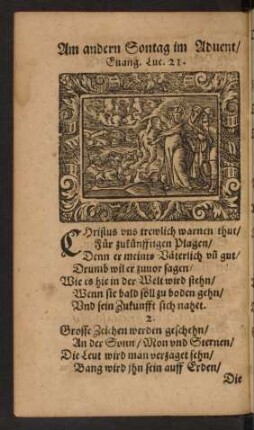 Am andern Sontag im Aduent/
Euang. Luc. 21.
CHristus vns trewlich warnen thut/
Für zukünfftigen Plagen/
Denn er meints Väterlich vñ gut/
Drumb wil er zuuor sagen/
Wie es hie in der Welt wird stehn/
Wenn sie bald söll zu boden gehn/
Vnd sein Zukunfft sich nahet.
2.
Grosse Zeichen werden geschehn/
An der Sonn/ Mon vnd Sternen/
Die Leut wird man verzaget sehn/
Bang wird jhn sein auff Erden/
Die